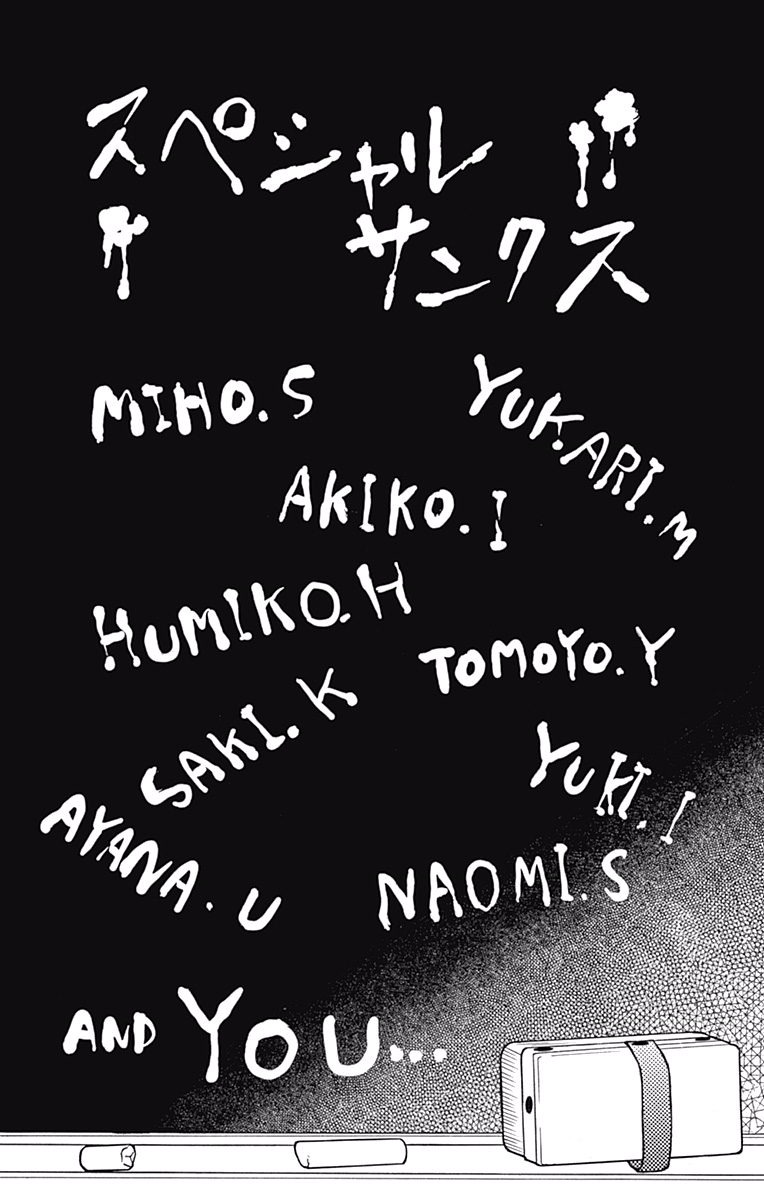 スペシャル
サンクス
MIHO.S
YUKARI.M
AKIKO.I
HUMIKO.H
TOMOYO.Y
SAKI.K
YUKI.I
AYANA.U
NAOMI.S
AND YOU...